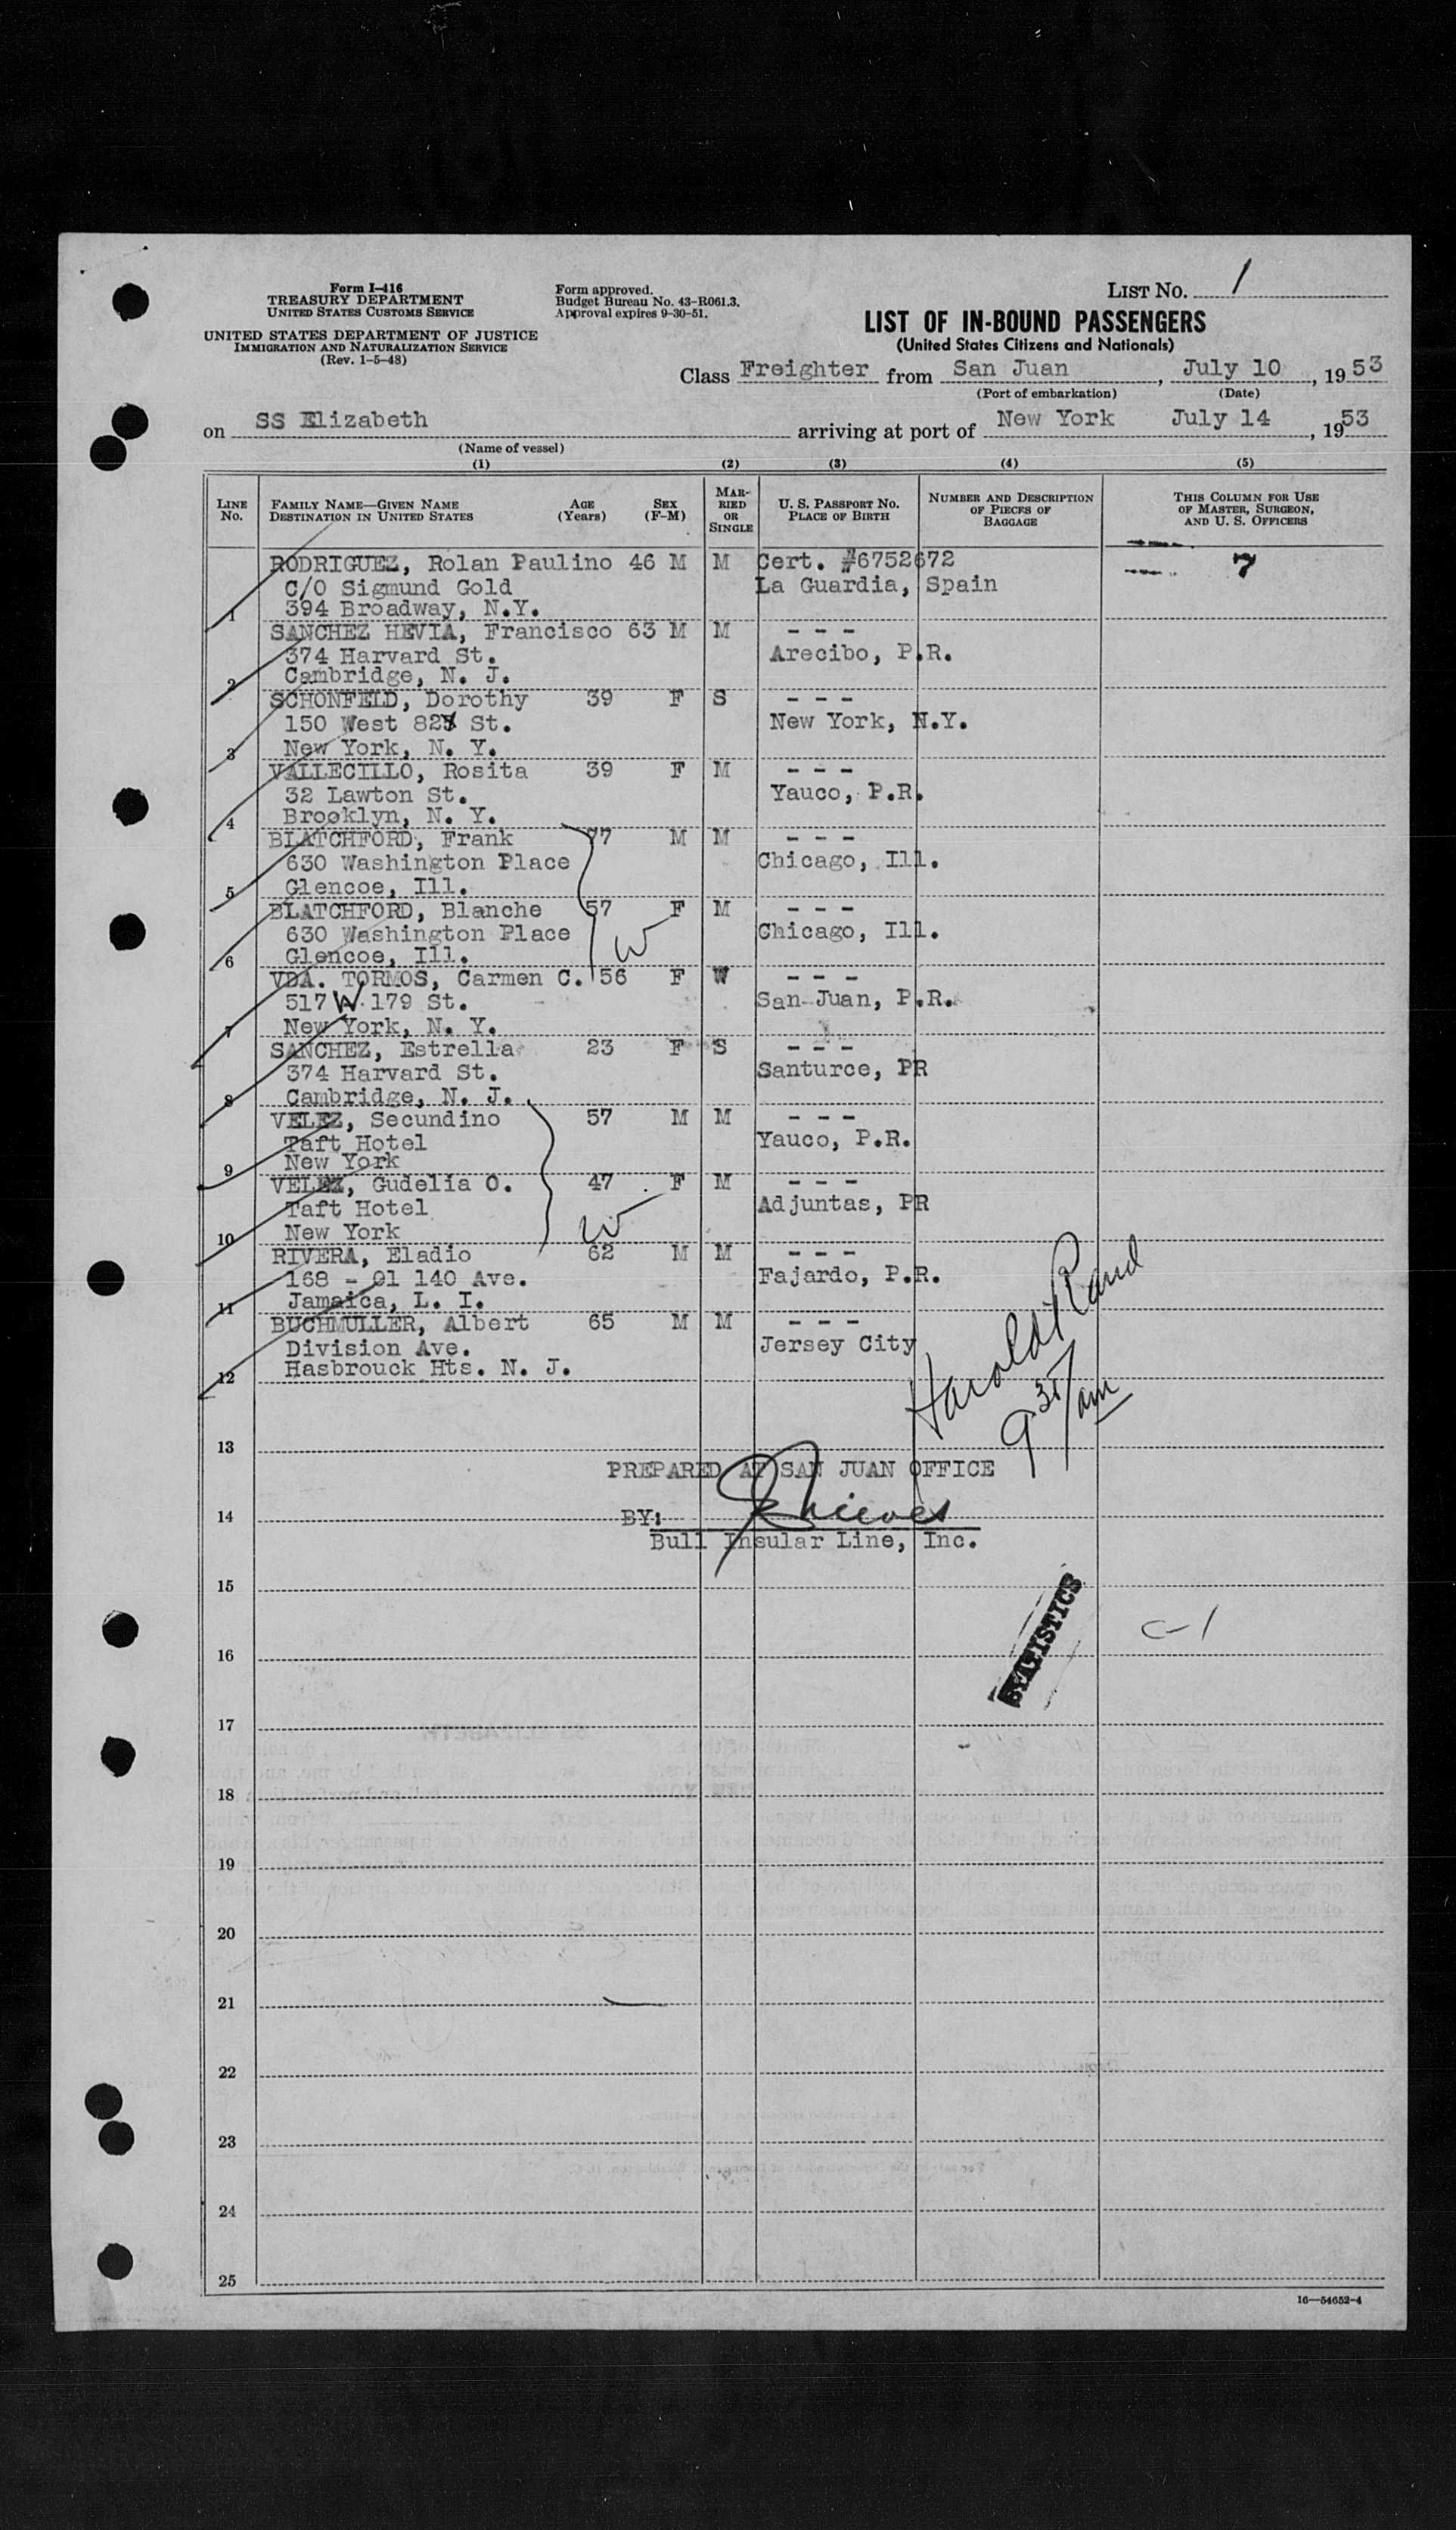 Form I-416
TREASURY DEPARTMENT
UNITED STATES CUSTOMS SERVICE
UNITED STATES DEPARTMENT OF JUSTICE
IMMIGRATION AND NATURALIZATION SERVICE
(Rev. 1-5-48)
Form approved.
Budget Bureau No. 43-R061.3.
Approval expires 9-30-51.
LIST NO. 1
LIST OF IN-BOUND PASSENGERS
(United States Citizens and Nationals)
Class Freighter from San Juan, July 10, 1953
(Port of embarkation) (Date)
on SS Elizabeth arriving at port of New York July 14, 1953
(Name of vessel)
(1) (2) (3) (4) (5)
LINE NO.
FAMILY NAME—GIVEN NAME
DESTINATION IN UNITED STATES
AGE (Years)
SEX (F-M)
MARRIED OR SINGLE
U. S. PASSPORT NO.
PLACE OF BIRTH
NUMBER AND DESCRIPTION OF PIECES OF BAGGAGE
THIS COLUMN FOR USE OF MASTER, SURGEON, AND U. S. OFFICERS
RODRIGUEZ, Rolan Paulino 46 M M Cert. #6752672 7
C/O Sigmund Gold La Guardia, Spain
1 394 Broadway, N.Y.
SANCHEZ HEVIA, Francisco 63 M M - - -
374 Harvard St. Arecibo, P.R.
2 Cambridge, N. J.
SCHONFELD, Dorothy 39 F S - - -
150 West 82 St. New York, N.Y.
3 New York, N. Y.
VALLECILLO, Rosita 39 F M - - -
32 Lawton St. Yauco, P.R.
4 Brooklyn, N. Y.
BLATCHFORD, Frank 77 M M - - -
630 Washington Place Chicago, Ill.
5 Glencoe, Ill.
BLATCHFORD, Blanche 57 F M - - -
630 Washington Place W Chicago, Ill.
6 Glencoe, Ill.
VDA. TORMOS, Carmen C. 56 F W - - -
517 W 179 St. San Juan, P.R.
7 New York, N. Y.
SANCHEZ, Estrella 23 F S - - -
374 Harvard St. Santurce, PR
8 Cambridge, N. J.
VELEZ, Secundino 57 M M - - -
Taft Hotel Yauco, P.R.
9 New York
VELEZ, Gudelia O. 47 F M - - -
Taft Hotel W Adjuntas, PR
10 New York
RIVERA, Eladio 62 M M - - -
168 - 01 140 Ave. Fajardo, P.R.
11 Jamaica, L. I.
BUCHMULLER, Albert 65 M M - - -
Division Ave. Jersey City
12 Hasbrouck Hts. N. J.
Harold Rand
9 30 am
13
PREPARED AT SAN JUAN OFFICE
14 BY:
Bull Insular Line, Inc.
15
STATISTICS
C-1
16
17
18
19
20
21
22
23
24
25
16—54652-4